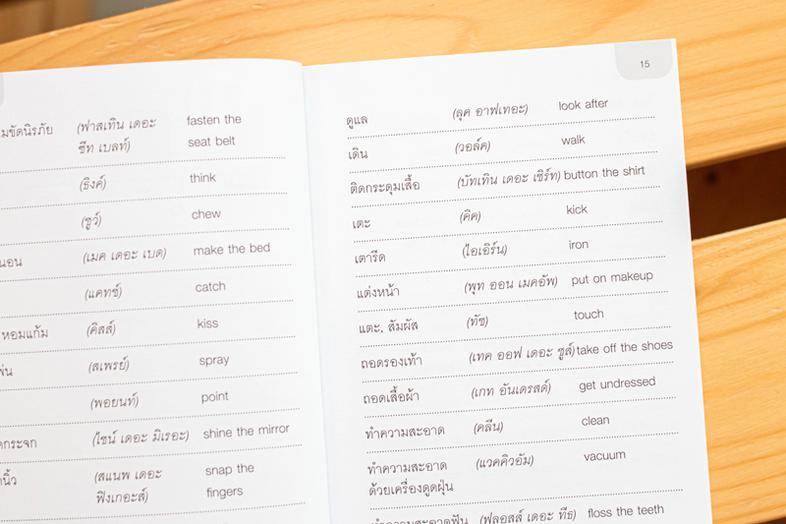 มขัดนิรภัย (ฟาสเทิน เดอะ fasten the
ซีท เบลท์) seat belt
(ธิงค์) think
(ชูว์) chew
นอน (เมค เดอะ เบด) make the bed
(แคทช์) catch
หอมแก้ม (คิสส์) kiss
พ่น (สเพรย์) spray
(พอยนท์) point
ดกระจก (ไชน์ เดอะ มิเรอะ) shine the mirror
นิ้ว (สแนพ เดอะ snap the
ฟิงเกอะส์) fingers
15
ดูแล (ลุค อาฟเทอะ) look after
เดิน (วอล์ค) walk
ติดกระดุมเสื้อ (บัทเทิน เดอะ เชิร์ท) button the shirt
เตะ (คิค) kick
เตารีด (ไอเอิร์น) iron
แต่งหน้า (พุท ออน เมคอัพ) put on makeup
แตะ, สัมผัส (ทัช) touch
ถอดรองเท้า (เทค ออฟ เดอะ ชูส์) take off the shoes
ถอดเสื้อผ้า (เกท อันเดรสด์) get undressed
ทำความสะอาด (คลีน) clean
ทำความสะอาด (แวคคิวอัม) vacuum
ด้วยเครื่องดูดฝุ่น
ทำความสะอาดฟัน (ฟลอสส์ เดอะ ทีธ) floss the teeth